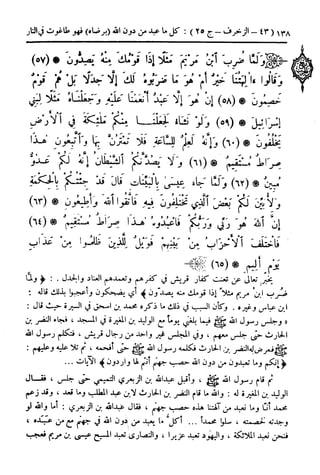 ١٣٨ (٤٣ - الزخرف - ج ٢٥) : كل ما عبد من دون الله (برضاه) فهو طاغوت في النار
وَلَمَّا ضُرِبَ ابْنُ مَرْيَمَ مَثَلًا إِذَا قَوْمُكَ مِنْهُ يَصِدُّونَ * (٥٧)
وَقَالُوا ءَأَٰلِهَتُنَا خَيْرٌ أَمْ هُوَ مَا ضَرَبُوهُ لَكَ إِلَّا جَدَلًا بَلْ هُمْ قَوْمٌ
خَصِمُونَ * (٥٨) إِنْ هُوَ إِلَّا عَبْدٌ أَنْعَمْنَا عَلَيْهِ وَجَعَلْنَٰهُ مَثَلًا لِبَنِي
إِسْرَائِيلَ * (٥٩) وَلَوْ نَشَاءُ لَجَعَلْنَا مِنْكُمْ مَلَٰئِكَةً فِي الْأَرْضِ
يَخْلُفُونَ * (٦٠) وَإِنَّهُ لَعِلْمٌ لِلسَّاعَةِ فَلَا تَمْتَرُنَّ بِهَا وَاتَّبِعُونِ هَٰذَا
صِرَاطٌ مُسْتَقِيمٌ * (٦١) وَلَا يَصُدَّنَّكُمُ الشَّيْطَٰنُ إِنَّهُ لَكُمْ عَدُوٌّ
مُبِينٌ * (٦٢) وَلَمَّا جَاءَ عِيسَىٰ بِالْبَيِّنَٰتِ قَالَ قَدْ جِئْتُكُمْ بِالْحِكْمَةِ
وَلِأُبَيِّنَ لَكُمْ بَعْضَ الَّذِي تَخْتَلِفُونَ فِيهِ فَاتَّقُوا اللهَ وَأَطِيعُونِ * (٦٣)
إِنَّ اللهَ هُوَ رَبِّي وَرَبُّكُمْ فَاعْبُدُوهُ هَٰذَا صِرَاطٌ مُسْتَقِيمٌ * (٦٤)
فَاخْتَلَفَ الْأَحْزَابُ مِنْ بَيْنِهِمْ فَوَيْلٌ لِلَّذِينَ ظَلَمُوا مِنْ عَذَابِ
يَوْمٍ أَلِيمٍ * (٦٥)
يخبر تعالى عن تعنت كفار قريش في كفرهم وتعمدهم العناد والجدل . : ﴿ولمّا
ضُرب ابن مريم مثلاً إذا قومك منه يصدّون﴾ أي يضحكون وأعجبوا بذلك قاله :
ابن عباس وغيره . وكأن السبب في ذلك ما ذكره محمد بن اسحق في السيرة حيث قال :
« وجلس رسول الله ﷺ فيما بلغني يوماً مع الوليد بن المغيرة في المسجد ، فجاء النضر بن
الحارث حتى جلس معهم ، وفي المجلس غير واحد من رجال قريش ، فتكلم رسول الله
ﷺ فعرض له النضر بن الحارث فكلمه رسول الله ﷺ حتى أفحمه ، ثم تلا عليه وعليهم :
﴿إنكم وما تعبدون من دون الله حصب جهنم أنتم لها واردون﴾ الآيات ...
ثم قام رسول الله ﷺ ، وأقبل عبدالله بن الزبعرى التميمي حتى جلس ، فقال
الوليد بن المغيرة له : والله ما قام النضر بن الحارث لابن عبد المطلب وما قعد ، وقد زعم
محمد أنّا وما نعبد من آلهتنا هذه حصب جهنم ، فقال عبدالله بن الزبعرى : أما والله لو
وجدته لخصمته ، سلوا محمداً ... أكلّ ما يعبد من دون الله في جهنم مع من عبده ،
فنحن نعبد الملائكة ، واليهود تعبد عزيراً ، والنصارى تعبد المسيح عيسى بن مريم فعجب